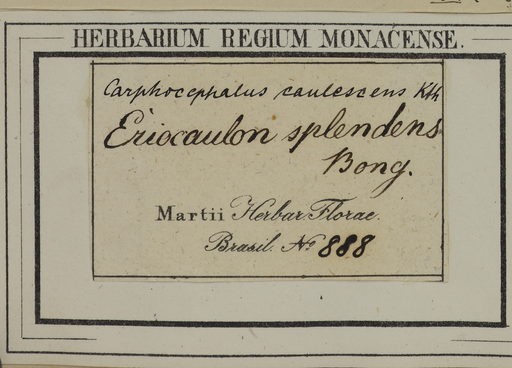 HERBARIUM REGIUM MONACENSE.
Carphocephalus caulescens Kth
Eriocaulon splendens
Bong.
Martii Herbar. Florae.
Brasil. No 888